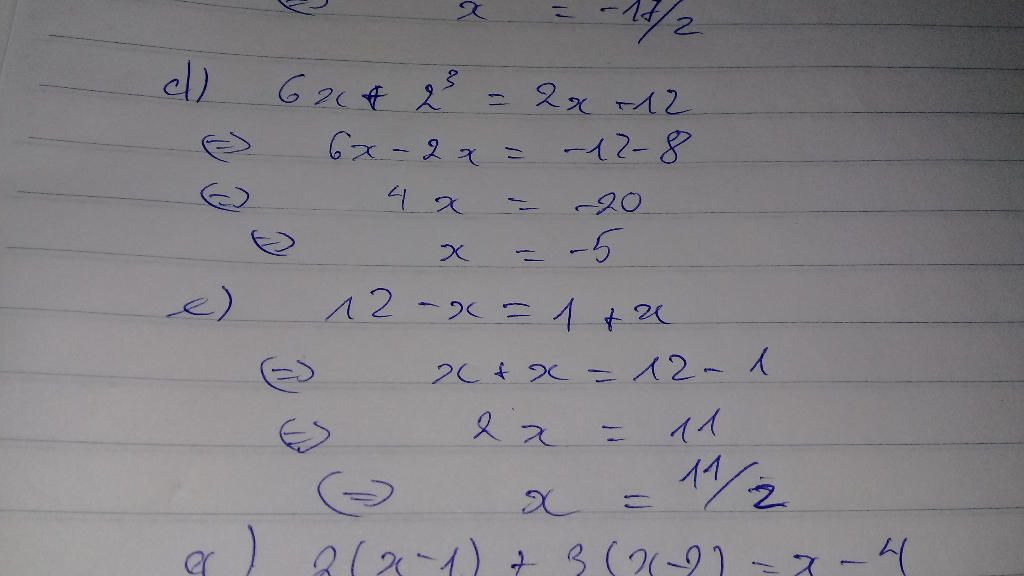 ⇔ x = -17/2
d) 6x + 2³ = 2x -12
⇔ 6x - 2x = -12-8
⇔ 4x = -20
⇔ x = -5
e) 12 - x = 1 + x
⇔ x + x = 12 - 1
⇔ 2x = 11
⇔ x = 11/2
a) 2(x-1) + 3(x-2) = x - 4